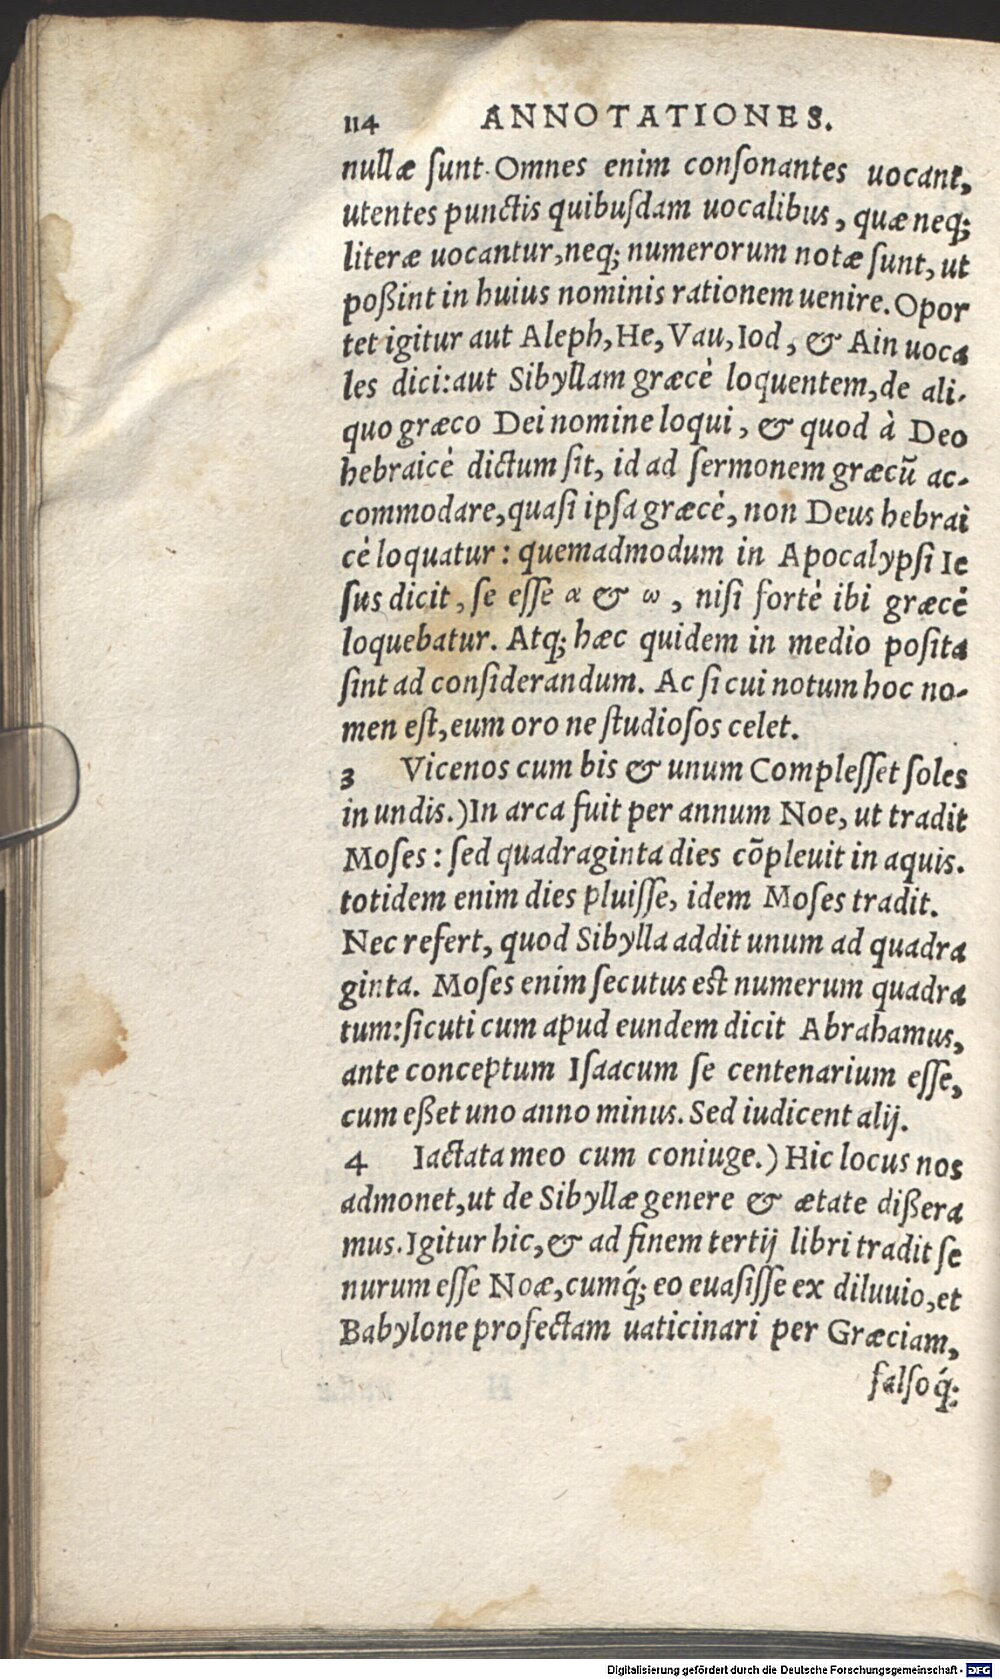 114 ANNOTATIONES.
nullæ ſunt. Omnes enim conſonantes uocant,
utentes punctis quibuſdam uocalibus, quæ neq;
literæ uocantur, neq; numerorum notæ ſunt, ut
poßint in huius nominis rationem uenire. Opor
tet igitur aut Aleph, He, Vau, Iod, & Ain uoca
les dici: aut Sibyllam græcè loquentem, de ali-
quo græco Dei nomine loqui, & quod à Deo
hebraicè dictum ſit, id ad ſermonem græcũ ac-
commodare, quaſi ipſa græcè, non Deus hebrai
cè loquatur: quemadmodum in Apocalypſi Ie
ſus dicit, ſe eſſe α & ω, niſi fortè ibi græcè
loquebatur. Atq; hæc quidem in medio poſita
ſint ad conſiderandum. Ac ſi cui notum hoc no-
men eſt, eum oro ne ſtudioſos celet.
3 Vicenos cum bis & unum Compleſſet ſoles
in undis.) In arca fuit per annum Noe, ut tradit
Moſes: ſed quadraginta dies cõpleuit in aquis.
totidem enim dies pluiſſe, idem Moſes tradit.
Nec refert, quod Sibylla addit unum ad quadra
ginta. Moſes enim ſecutus est numerum quadra
tum: ſicuti cum apud eundem dicit Abrahamus,
ante conceptum Iſaacum ſe centenarium eſſe,
cum eßet uno anno minus. Sed iudicent alij.
4 Iactata meo cum coniuge.) Hic locus nos
admonet, ut de Sibyllæ genere & ætate dißera
mus. Igitur hic, & ad finem tertij libri tradit ſe
nurum eſſe Noæ, cumq́; eo euaſiſſe ex diluuio, et
Babylone profectam uaticinari per Græciam,
falſoq́;
Digitalisierung gefördert durch die Deutsche Forschungsgemeinschaft - DFG